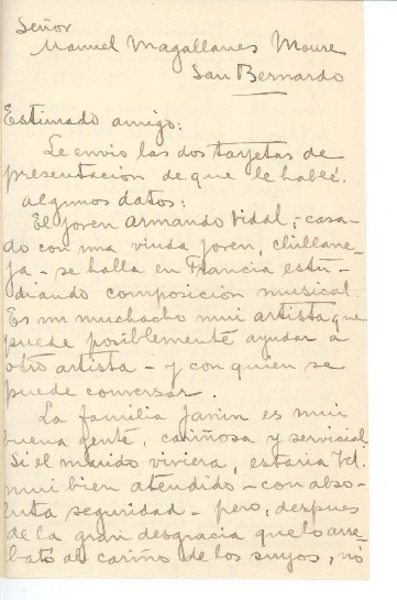 Señor
Manuel Magallanes Moure
San Bernardo
Estimado amigo:
Le envio las dos tarjetas de
presentación de que le hablé.
algunos datos:
El joven Armando Vidal,- casa-
do con una viuda joven, chillane-
ja - se halla en Francia estu-
diando composición musical.
Es un muchacho mui artista que
puede posiblemente ayudar a
otro artista - y con quien se
puede conversar.
La familia Janin es mui
buena gente, cariñosa y servicial
Si el marido viviera, estaria Vd.
mui bien atendido - con abso-
luta seguridad - pero, despues
de la gran desgracia que lo arre-
bato al cariño de los suyos, nó